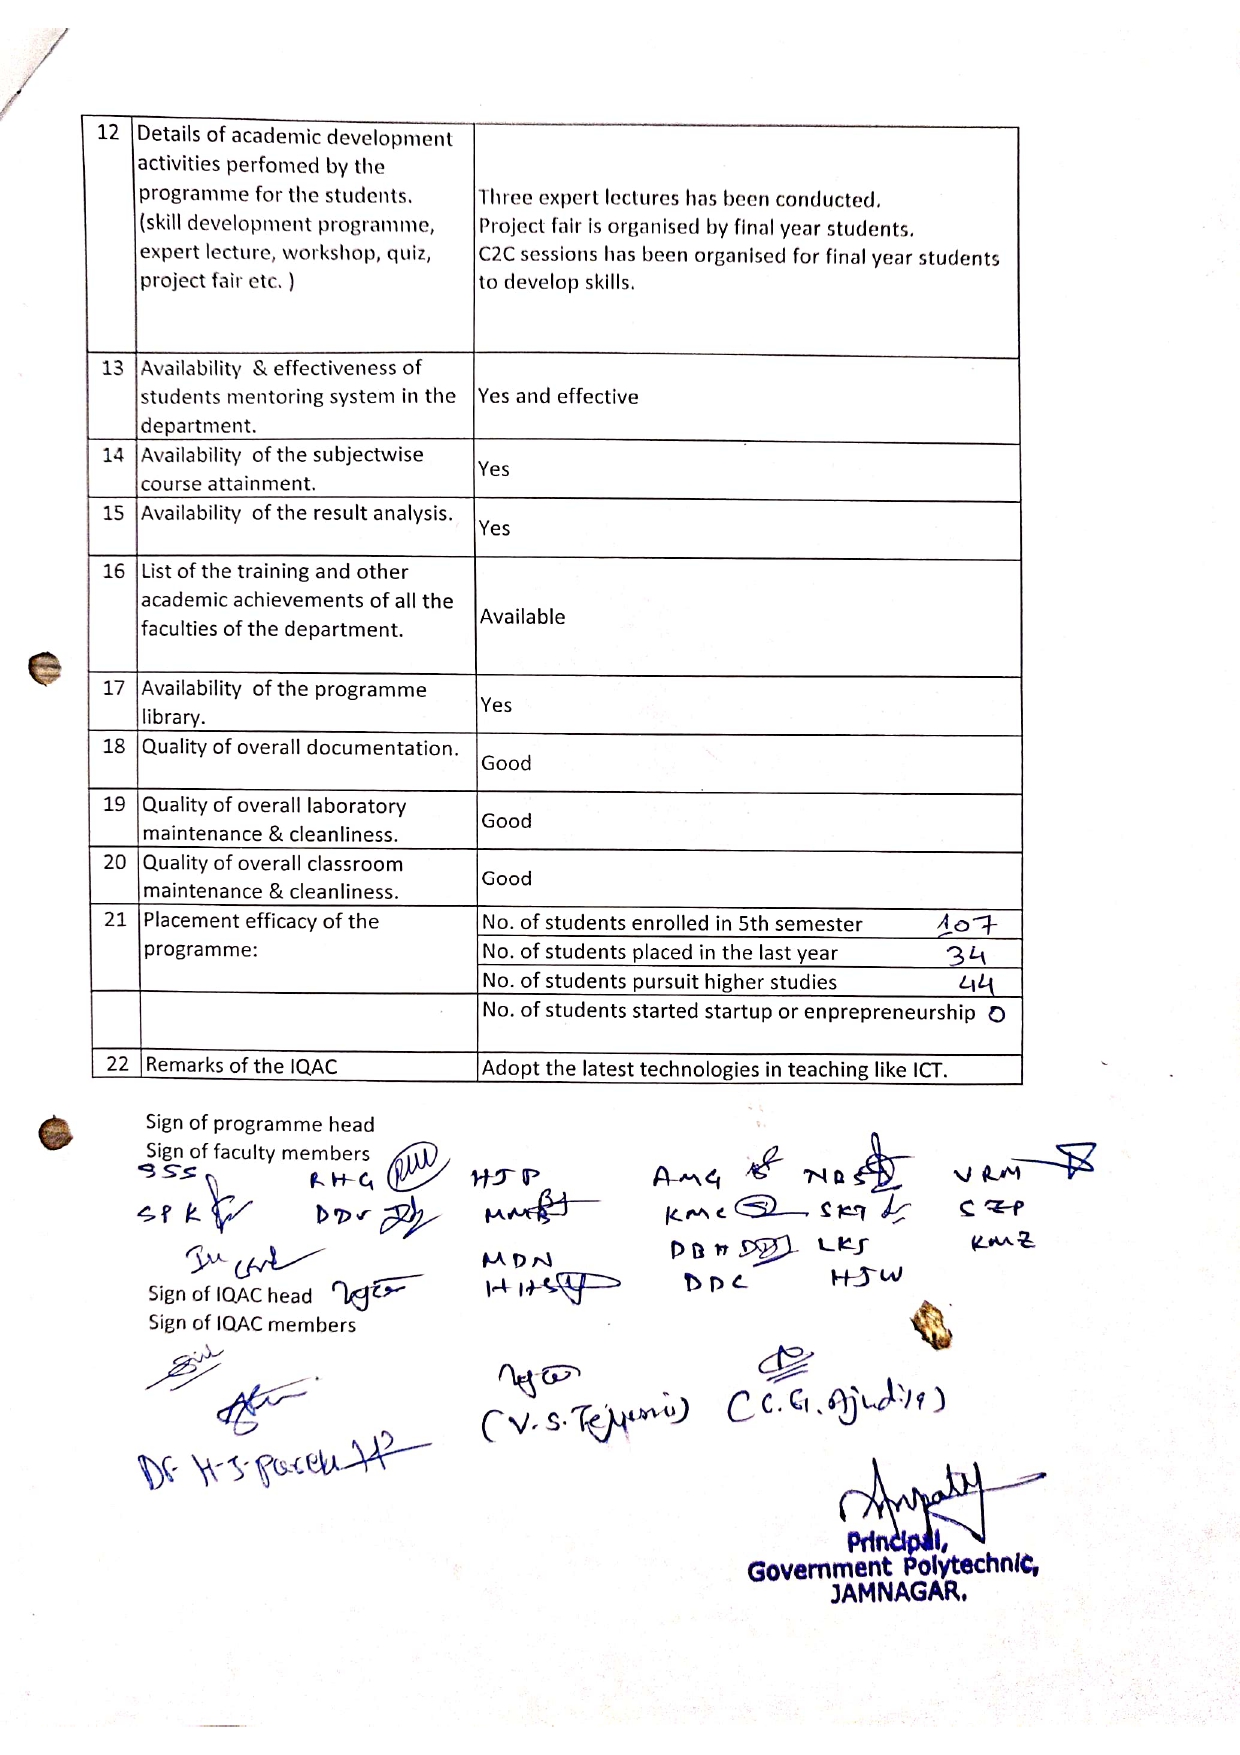 12 Details of academic development
activities perfomed by the
programme for the students.
(skill development programme,
expert lecture, workshop, quiz,
project fair etc. )
Three expert lectures has been conducted.
Project fair is organised by final year students.
C2C sessions has been organised for final year students
to develop skills.
13 Availability & effectiveness of
students mentoring system in the
department.
Yes and effective
14 Availability of the subjectwise
course attainment.
Yes
15 Availability of the result analysis.
Yes
16 List of the training and other
academic achievements of all the
faculties of the department.
Available
17 Availability of the programme
library.
Yes
18 Quality of overall documentation.
Good
19 Quality of overall laboratory
maintenance & cleanliness.
Good
20 Quality of overall classroom
maintenance & cleanliness.
Good
21 Placement efficacy of the
programme:
No. of students enrolled in 5th semester 107
No. of students placed in the last year 34
No. of students pursuit higher studies 44
No. of students started startup or enprepreneurship 0
22 Remarks of the IQAC
Adopt the latest technologies in teaching like ICT.
Sign of programme head
Sign of faculty members
SSS RHG HJP AMG NDS VRM
SPK DDV MMB KMC SKT CZP
MDN DBH LKJ KMZ
HHS DDC HJW
Sign of IQAC head
Sign of IQAC members
(V.S. Tejwani) (C.G. Ajudiya)
Dr H.J. Parekh
Principal,
Government Polytechnic,
JAMNAGAR.